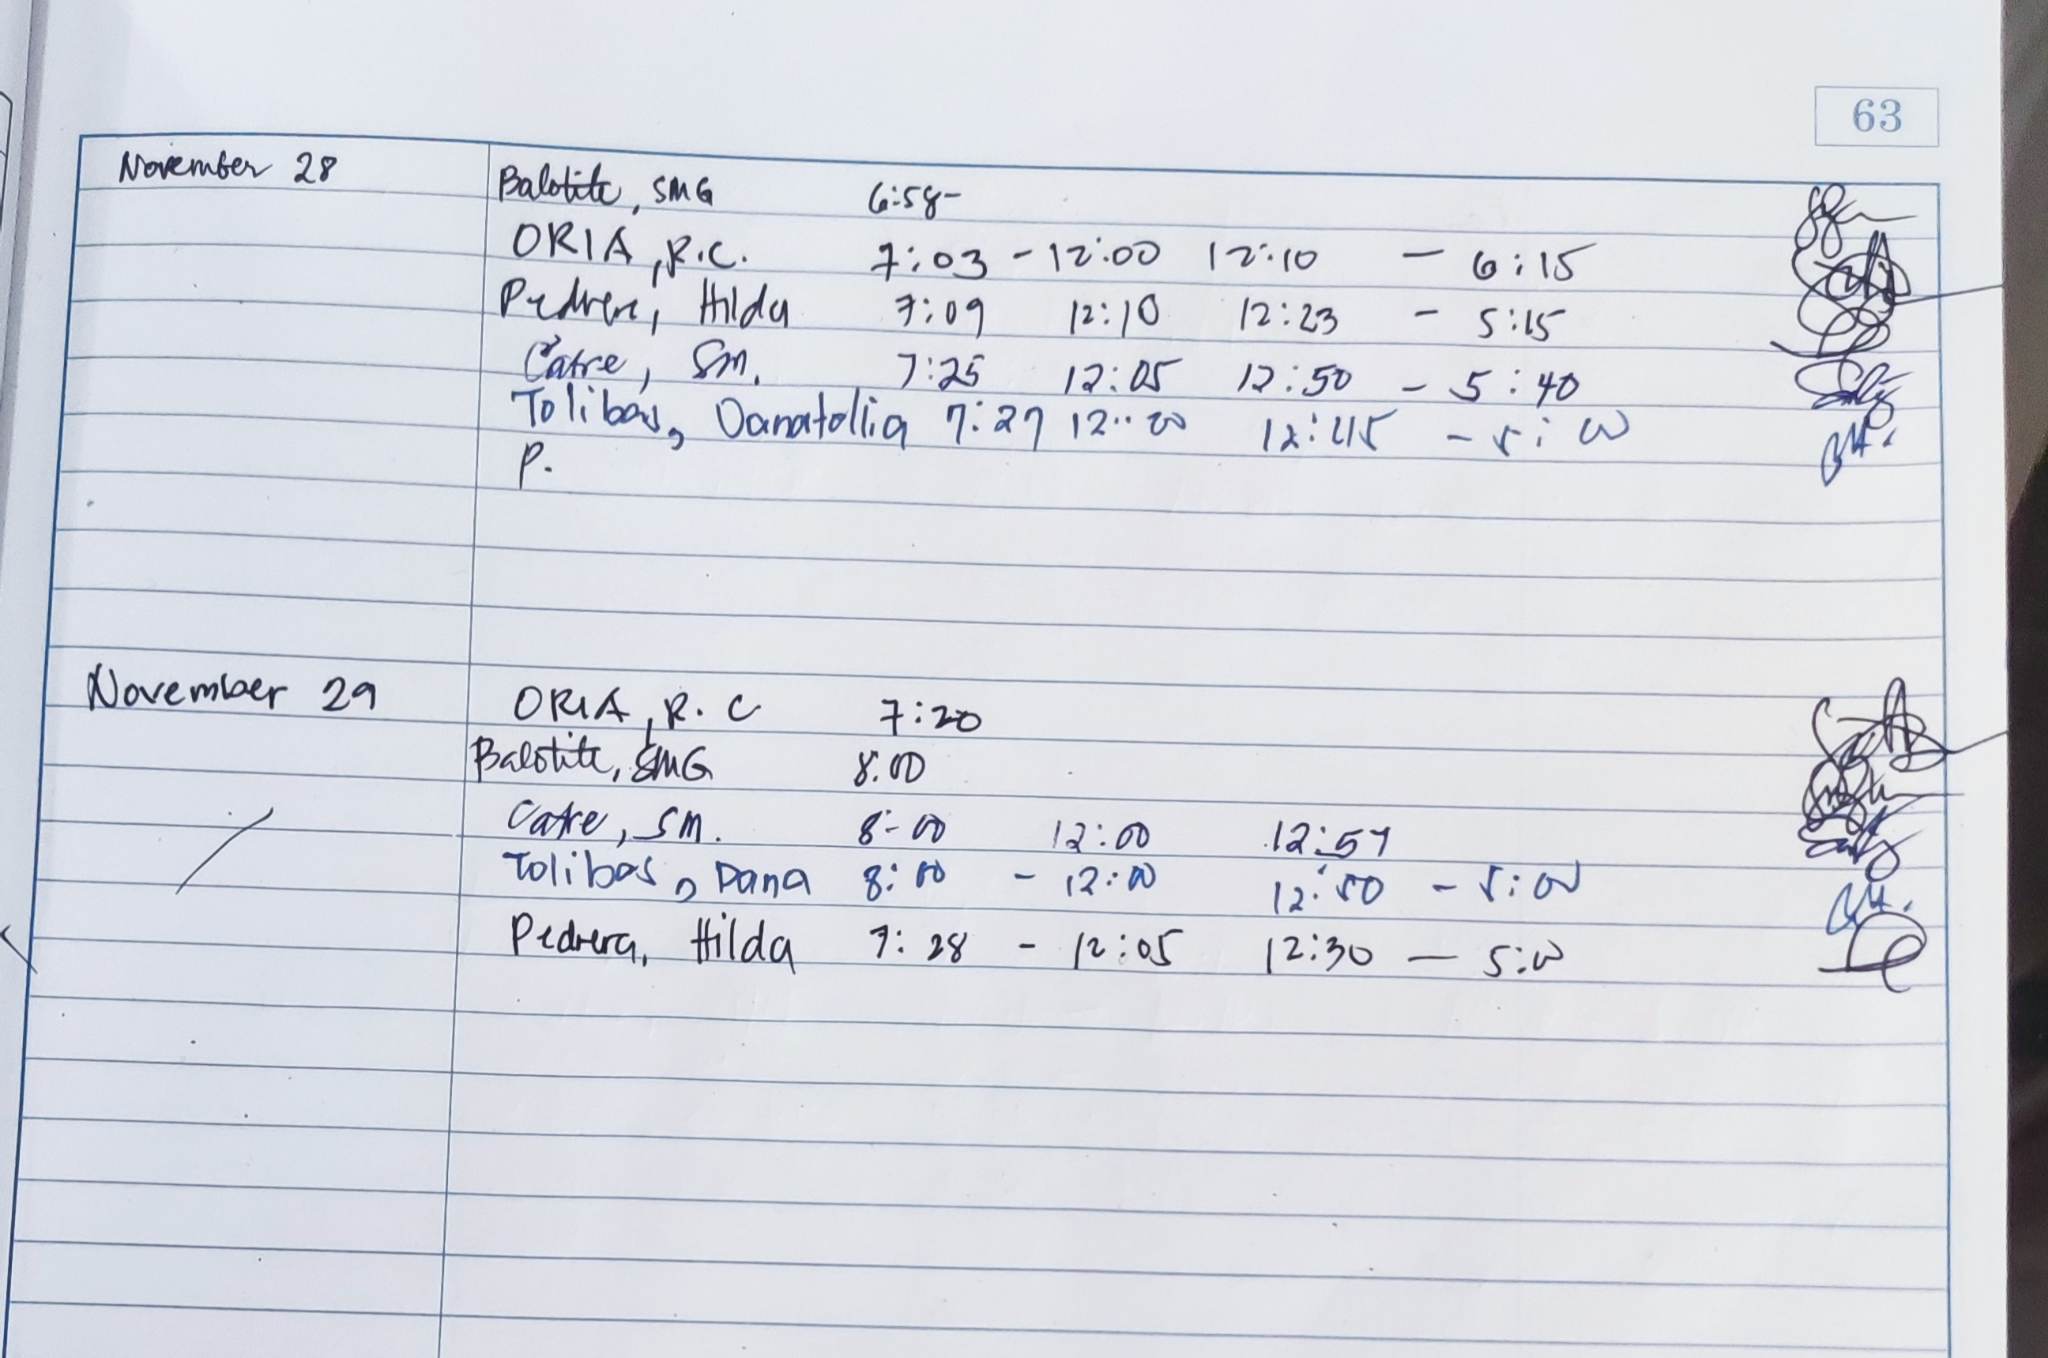 63
November 28 Balotite, SMG 6:58-
ORIA, R.C. 7:03 - 12:00 12:10 - 6:15
Pedrera, Hilda 7:09 12:10 12:23 - 5:15
Catre, SM. 7:25 12:05 12:50 - 5:40
Tolibas, Danatollia 7:27 12:00 12:45 - 5:00
P.
November 29 ORIA, R.C 7:20
Balotite, SMG 8:00
Catre, SM. 8:00 12:00 12:57
Tolibas, Dana 8:00 - 12:00 12:50 - 5:00
Pedrera, Hilda 7:28 - 12:05 12:30 - 5:00